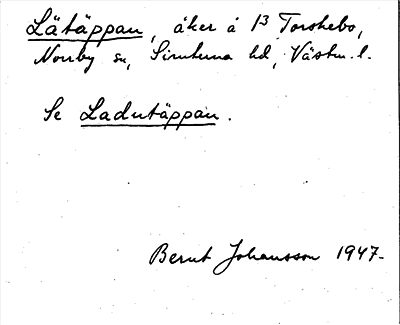 Lätäppan, åker å 1³ Torskebo,
Norrby sn, Simtuna hd, Västm. l.
Se Ladutäppan.
Bernt Johansson 1947.